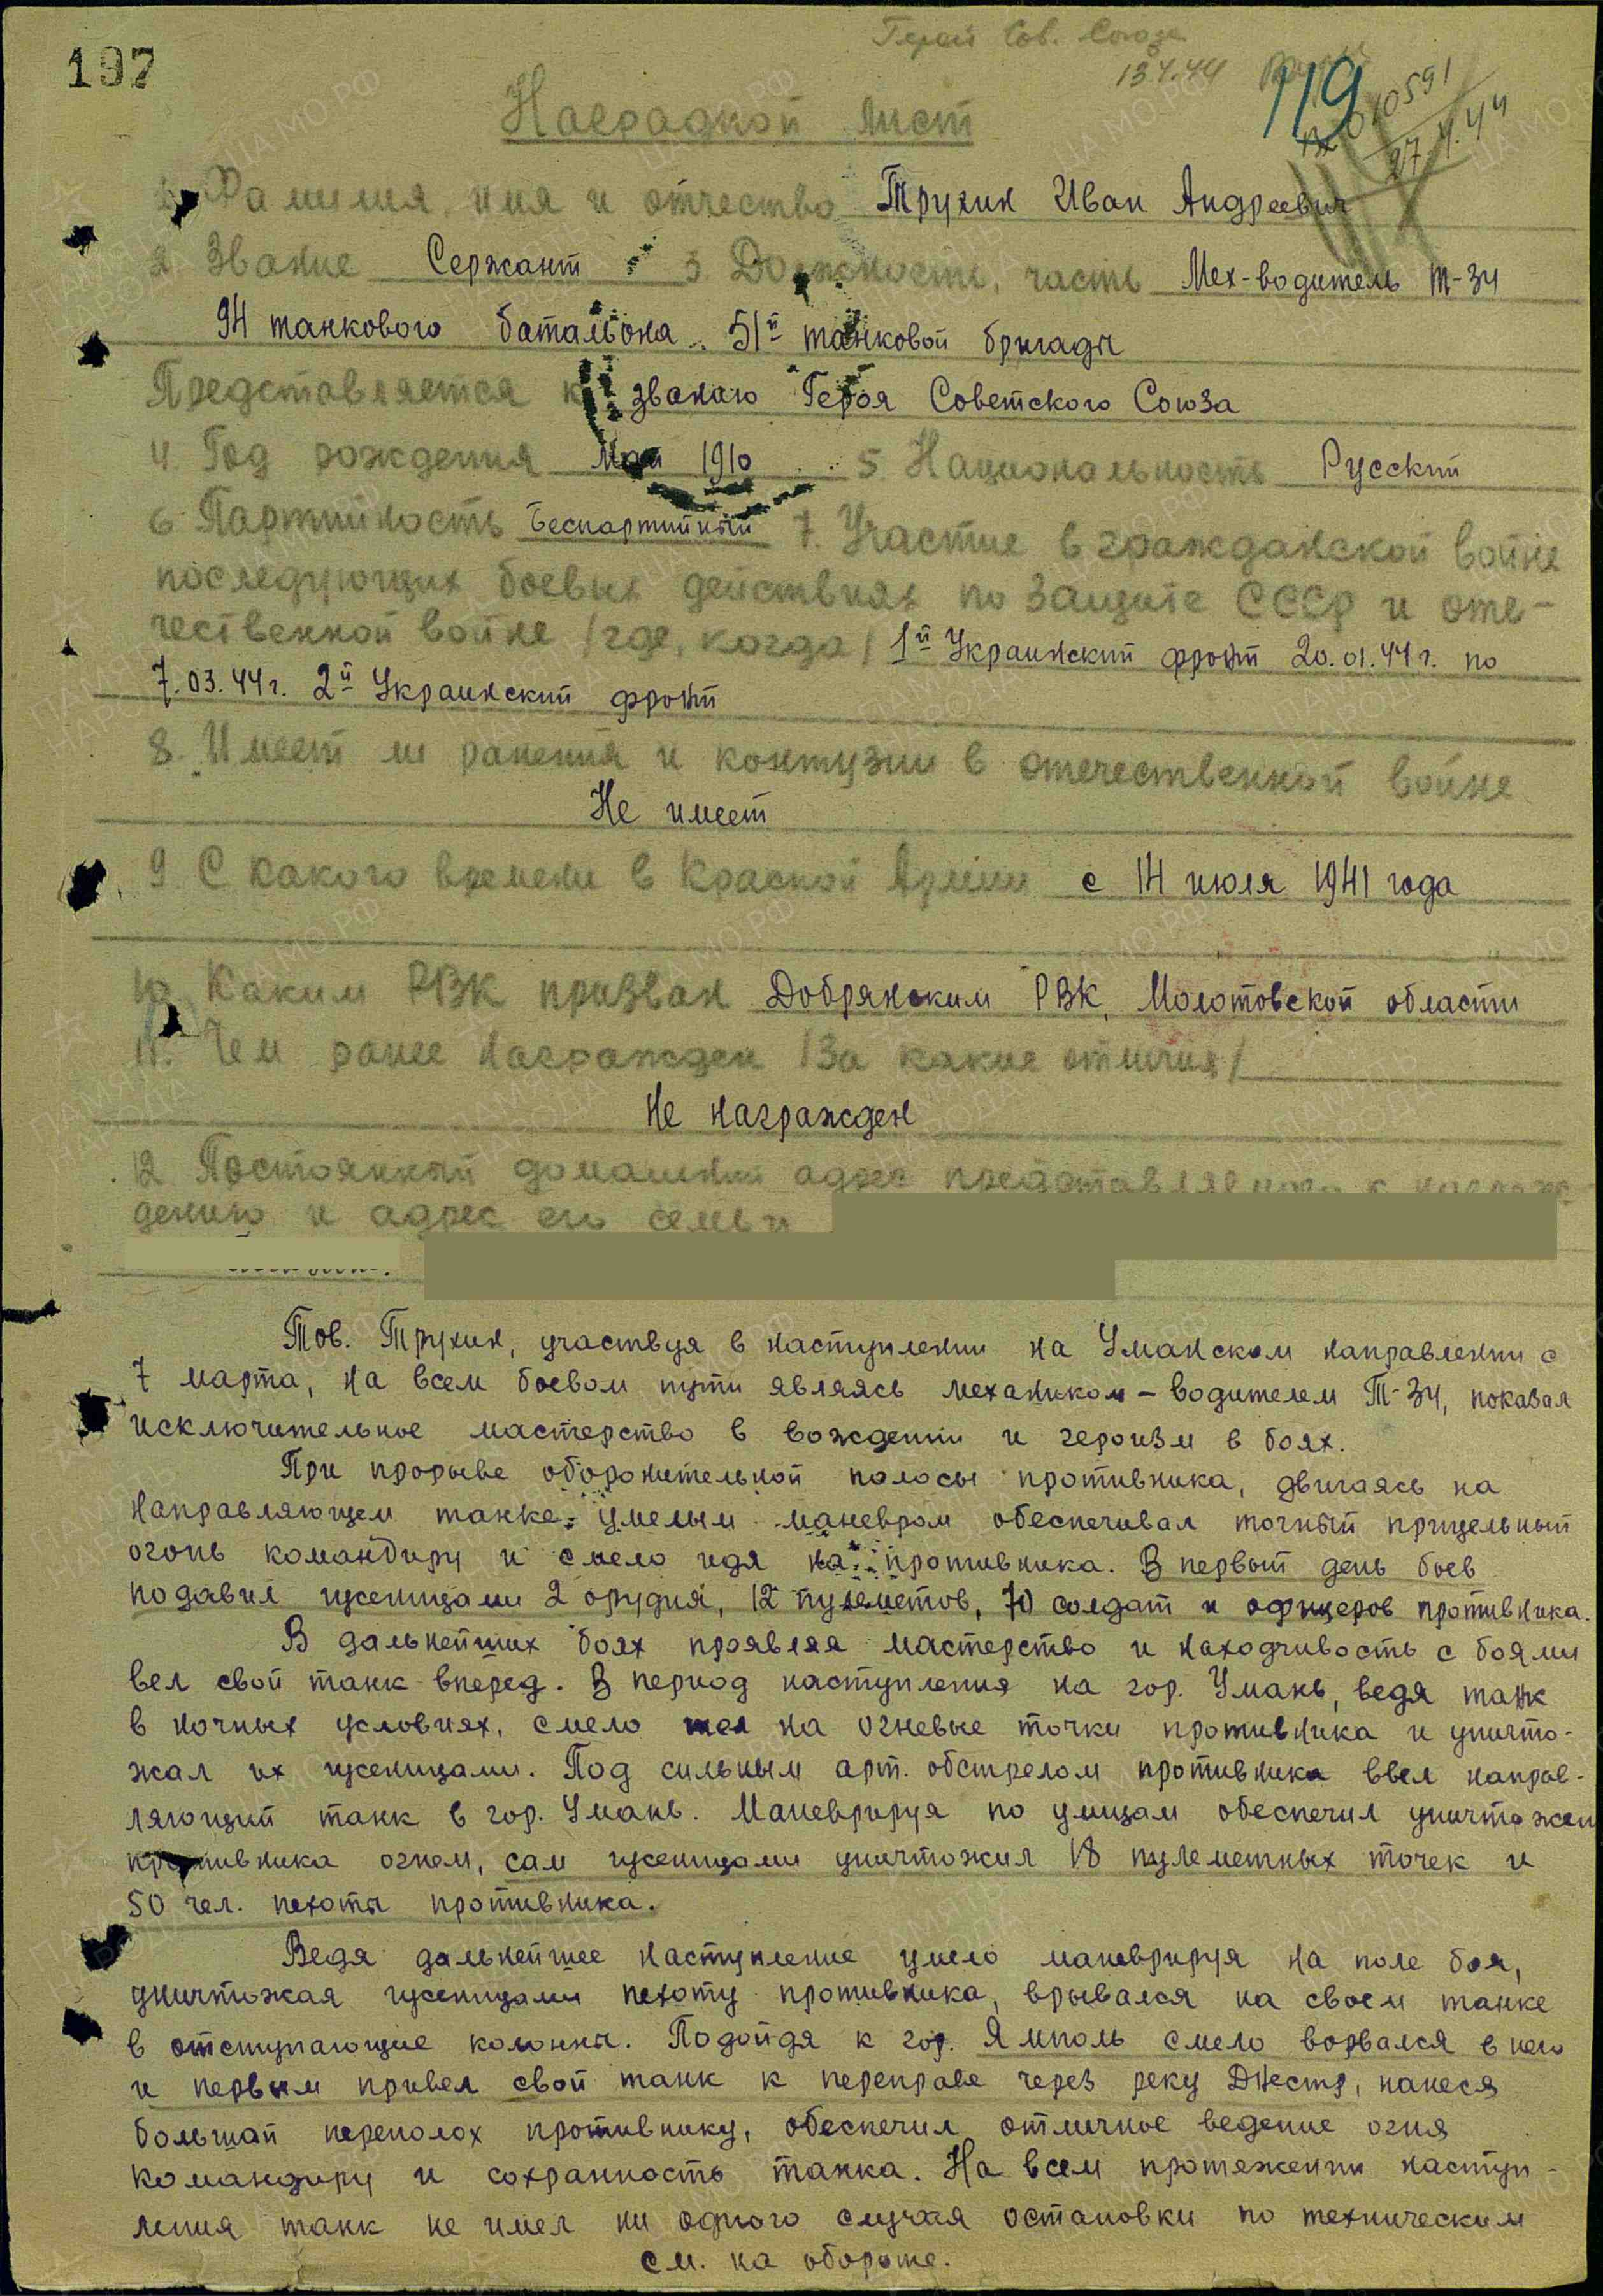 197
Герой Сов. Союза
13.4.44
119
010591
27.4.44
Наградной лист
1. Фамилия, имя и отчество Трухин Иван Андреевич
2. Звание Сержант 3. Должность, часть Мех-водитель Т-34
94 танкового батальона 51й танковой бригады
Представляется к званию Героя Советского Союза
4. Год рождения Май 1910 5. Национальность Русский
6. Партийность Беспартийный 7. Участие в гражданской войне
последующих боевых действиях по защите СССР и оте-
чественной войне /где, когда/ 1й Украинский фронт 20.01.44 г. по
7.03.44 г. 2й Украинский фронт
8. Имеет ли ранения и контузии в отечественной войне
Не имеет
9. С какого времени в Красной Армии с 14 июля 1941 года
10. Каким РВК призван Добрянским РВК, Молотовской области
11. Чем ранее награжден /За какие отличия/
Не награжден
12. Постоянный домашний адрес представляемого к награж-
дению и адрес его семьи
Тов. Трухин, участвуя в наступлении на Уманском направлении с
7 марта, на всем боевом пути являясь механиком-водителем Т-34, показал
исключительное мастерство в вождении и героизм в боях.
При прорыве оборонительной полосы противника, двигаясь на
направляющем танке, умелым маневром обеспечивал точный прицельный
огонь командиру и смело идя на противника. В первый день боев
подавил гусеницами 2 орудия, 12 пулеметов, 70 солдат и офицеров противника.
В дальнейших боях проявляя мастерство и находчивость с боями
вел свой танк вперед. В период наступления на гор. Умань, ведя танк
в ночных условиях, смело шел на огневые точки противника и уничто-
жал их гусеницами. Под сильным арт. обстрелом противника ввел направ-
ляющий танк в гор. Умань. Маневрируя по улицам обеспечил уничтожен
противника огнем, сам гусеницами уничтожил 18 пулеметных точек и
50 чел. пехоты противника.
Ведя дальнейшее наступление умело маневрируя на поле боя,
уничтожая гусеницами пехоту противника, врывался на своем танке
в отступающие колонны. Подойдя к гор. Ямполь смело ворвался в него
и первым привел свой танк к переправе через реку Днестр, нанеся
большой переполох противнику, обеспечил отличное ведение огня
командиру и сохранность танка. На всем протяжении наступ-
ления танк не имел ни одного случая остановки по техническим
см. на обороте.